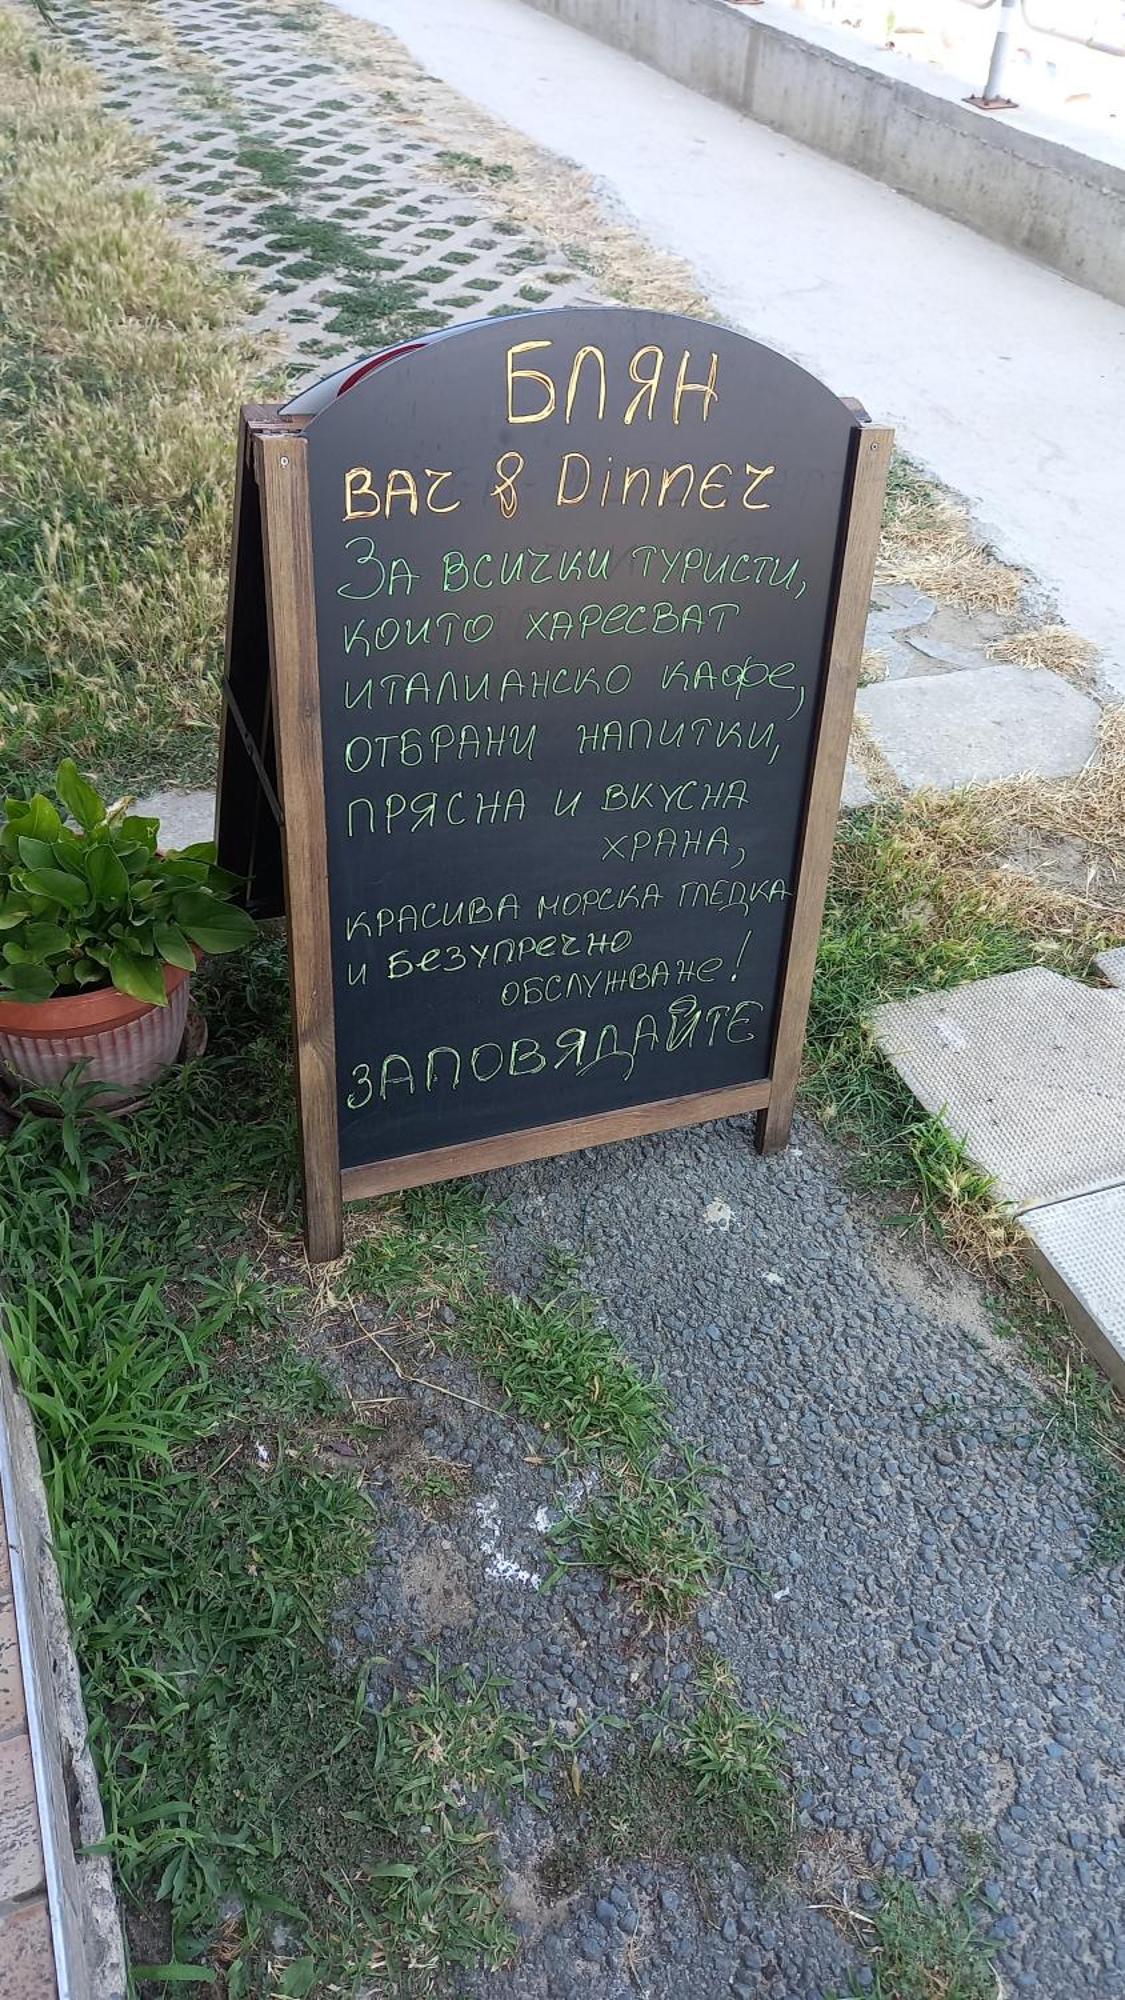 БЛЯН
BAr & DinnEr
За всички туристи,
които харесват
италианско кафе,
отбрани напитки,
прясна и вкусна
храна,
красива морска гледка
и безупречно
обслужване!
ЗАПОВЯДАЙТЕ